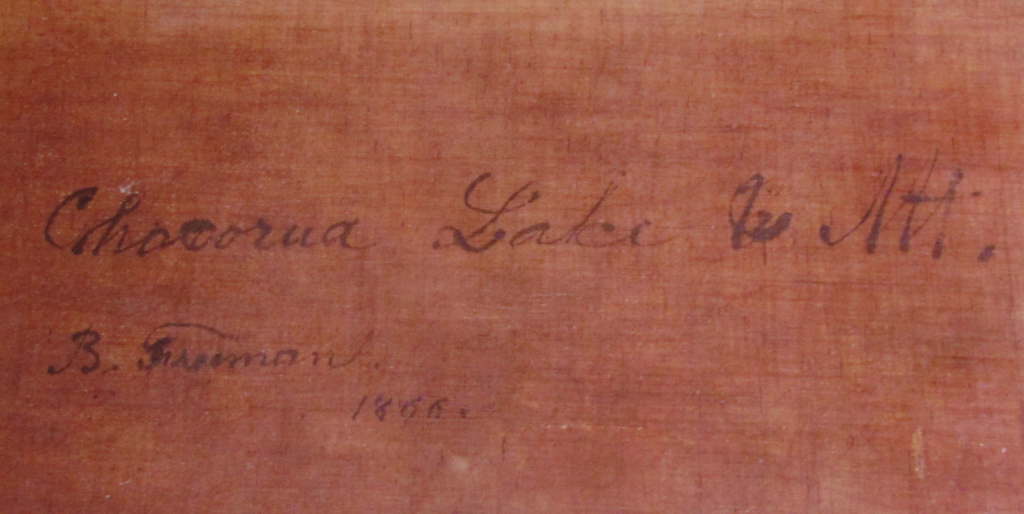 Chocorua Lake & Mt.
B. Freeman.
1866.